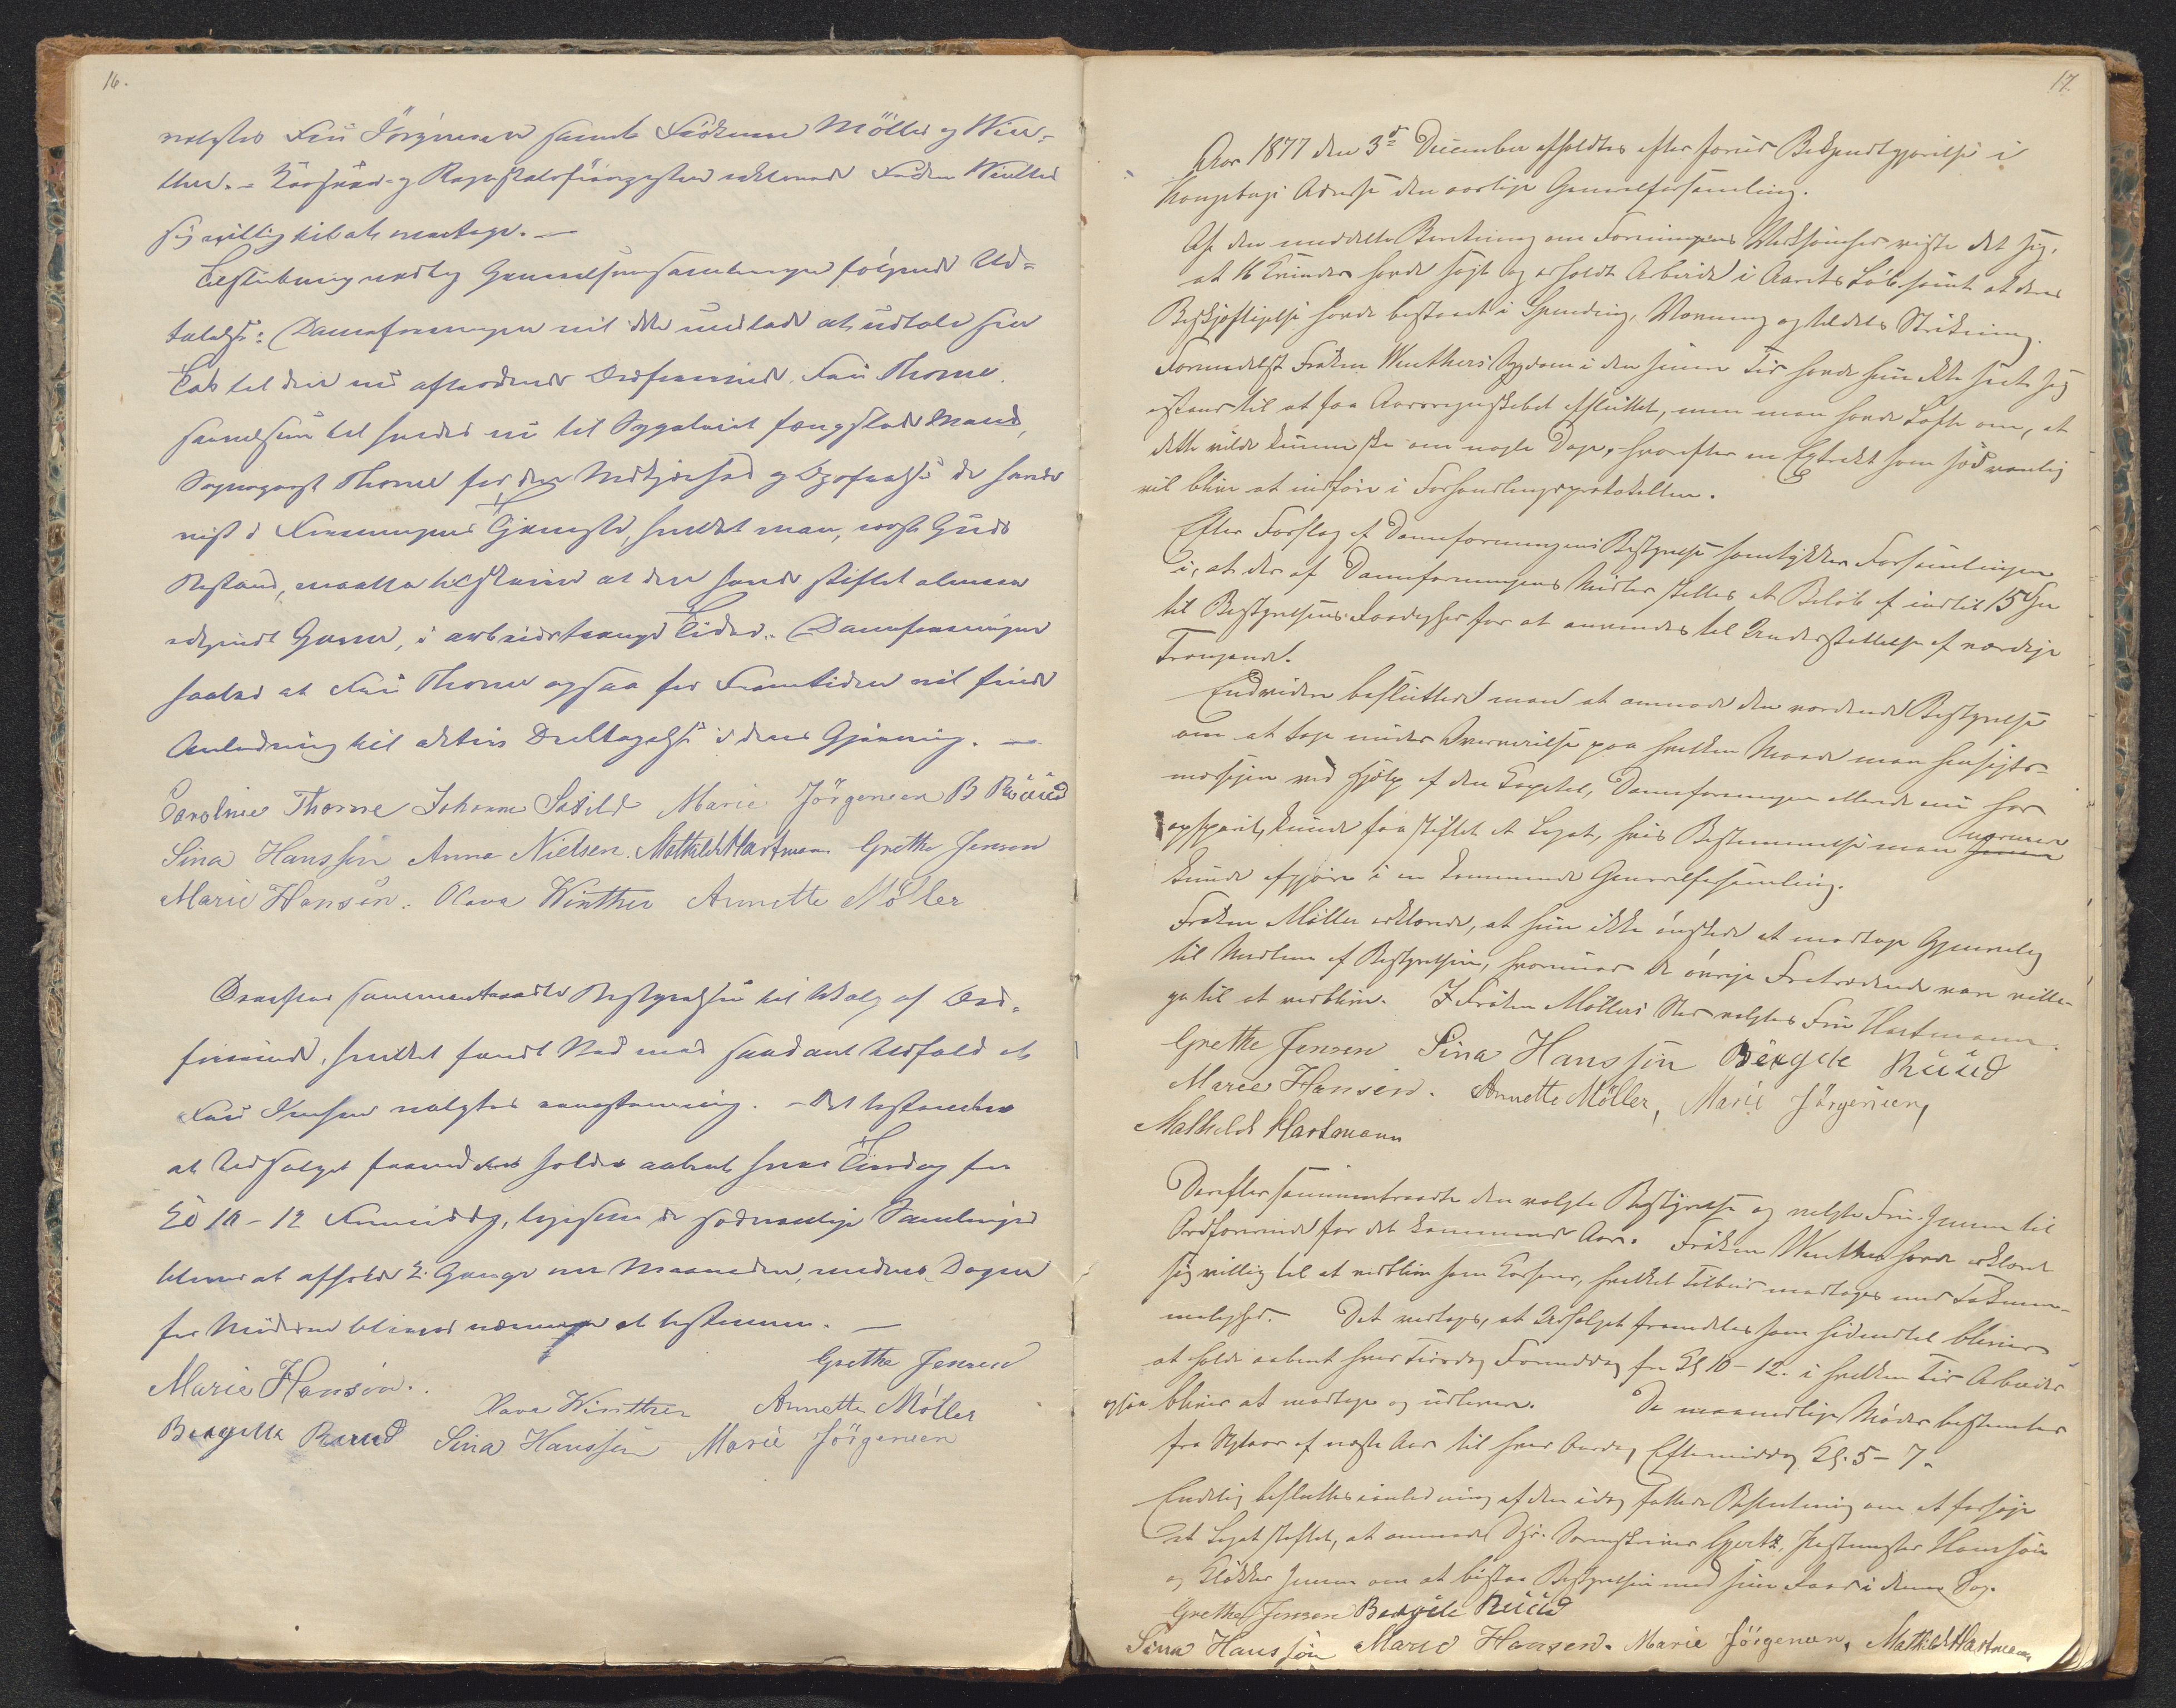 16.
valgtes Fru Jörgensen samt Fröknerne Möller og Win-
ther. – Kasserer- og Regnskabsföringsposten erklærede Frøken Winther
sig villig til at modtage. –
Tilslutning vedtog Generalforsamlingen følgende Ud-
talelse: Dameforeningen vil ikke undlade at udtale sin
Tak til den nu aftrædende Ordførerinde, Fru Thorne
samt til hendes nu til Sygeleiet fængslede Mand,
Sogneprest Thorne for den Virksomhed og Opofrelse de havde
vist i Foreningens Tjeneste, hvilket man, næst Guds
Bistand, maatte tilskrive at den havde stiftet almeen
Gavn, i arbeidstrange Tider. Dameforeningen
haaber at Fru Thorne ogsaa for Fremtiden vil finde
Anledning til aktiv Deeltagelse i dens Gjerning. –
Caroline Thorne Johanne Saxild Marie Jörgensen B Ruud
Sina Hanssön Anna Nielsen. Mathilde Hartmann Grethe Jensen
Marie Hansen. Olava Winther Annette Möller
Derefter sammentraadte Bestyrelsen til Valg af Ord-
førerinde, hvilket fandt Sted med saadant Udfald at
Fru Jensen valgtes eenstemmig. – Det bestemtes
at Udsalget fremdeles holdes aabent hver Tirsdag fra
Kl 10 – 12 Formiddag, ligesom de sædvanlige Samlinger
bliver at afholde 2 Gange om Maaneden, medens Dagen
for Møderne bliver nærmere at bestemme. –
Grethe Jensen
Marie Hansen. Olava Winther Annette Möller
Bergitte Ruud Sina Hanssön Marie Jörgensen
17.
Aar 1877 den 3de December afholdtes efter forud Bekjendtgjørelse i
Kongsbergs Adresse den aarlige Generalforsamling.
Af den meddelte Beretning om Foreningens Virksomhed viste det sig,
at 16 Kvinder havde søgt og erholdt Arbeide i Aarets Løb samt at deres
Beskjæftigelse havde bestaaet i Spinding, Vævning og tildels Strikning.
Formedelst Frøken Winthers Sygdom i den senere Tid havde hun ikke seet sig
istand til at faa Aarsregnskabet afsluttet, men man havde Løfte om, at
dette vilde kunne ske om nogle Dage, hvorefter en Extrakt som sædvanlig
vil blive at indføre i Forhandlingsprotokollen.
Efter Forslag af Dameforeningens Bestyrelse samtykker Forsamlingen
i, at der af Dameforeningens Midler stilles et Beløb af indtil 15 Spd
til Bestyrelsens Raadighed for at anvendes til Understøttelse af værdige
Trængende.
Endvidere besluttede man at anmode den vordende Bestyrelse
om at tage under Overveielse paa hvilken Maade man hensigts-
mæssigen ved Hjælp af den Kapital, Dameforeningen allerede nu har
opsparet, kunde faa stiftet et Legat, hvis Bestemmelse man nærmere
kunde afgjøre i en kommende Generalforsamling.
Frøken Møller erklærede, at hun ikke ønskede at modtage Gjenvalg
til Medlem af Bestyrelsen, hvorimod de øvrige Fratrædende vare villi-
ge til at vedblive. I Frøken Møllers Sted valgtes Fru Hartmann.
Grethe Jensen Sina Hanssön Bergitte Ruud
Marie Hansen. Annette Möller, Marie Jörgensen,
Mathilde Hartmann
Derefter sammentraadte den valgte Bestyrelse og valgte Fru Jensen til
Ordførerinde for det kommende Aar. Frøken Winther havde erklæret
sig villig til at vedblive som Kasserer, hvilket Tilbud modtoges med Taknem-
melighed. Det vedtoges, at Udsalget fremdeles som hidindtil bliver
at holde aabent hver Tirsdag Formiddag fra Kl 10 – 12. i hvilken Tid Arbeide
ogsaa bliver at modtage og udlevere. De maanedlige Møder bestemtes
fra Nytaar af næste Aar til hver Onsdag Eftermiddag Kl. 5 – 7.
Endelig besluttes i Anledning af den idag fattede Beslutning om at forsøge
et Legat stiftet, at anmode Hr. Sorenskriver Gjertz, Postmester Hanssön
og Klokker Jensen om at bistaa Bestyrelsen med sine Raad i denne Sag.
Grethe Jensen Bergitte Ruud
Sina Hanssön Marie Hansen. Marie Jörgensen, Mathilde Hartmann